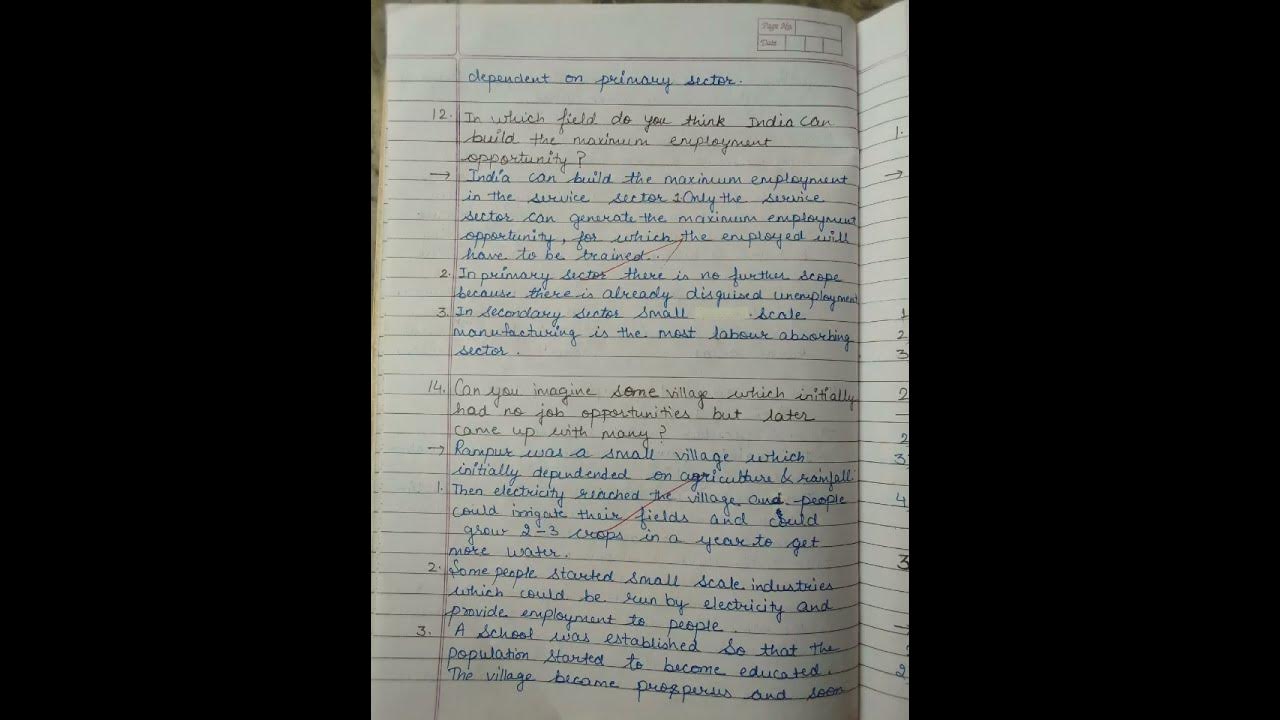 Page No.
Date
dependent on primary sector.
12. In which field do you think India can
build the maximum employment
opportunity?
→ India can build the maximum employment
in the service sector 1 Only the service
sector can generate the maximum employment
opportunity, for which the employed will
have to be trained..
2. In primary sector there is no further scope
because there is already disguised unemployment
3. In secondary sector small scale
manufacturing is the most labour absorbing
sector.
14. Can you imagine some village which initially
had no job opportunities but later
came up with many?
→ Rampur was a small village which
initially dependended on agriculture & rainfall
1. Then electricity reached the village and people
could irrigate their fields and could
grow 2-3 crops in a year to get
more water.
2. Some people started small scale industries
which could be run by electricity and
provide employment to people.
3. A school was established so that the
population started to become educated.
The village became prosperus and soon
1.
→
1
2
3
2
2
3
4
3
2